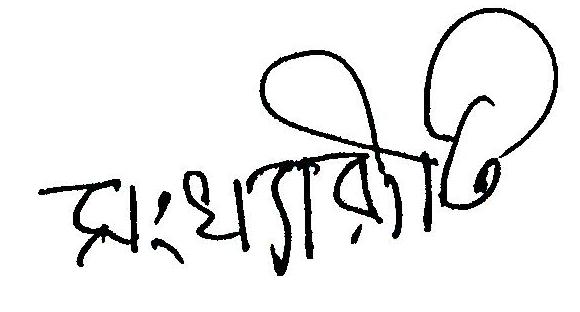 সংখ্যারীতি